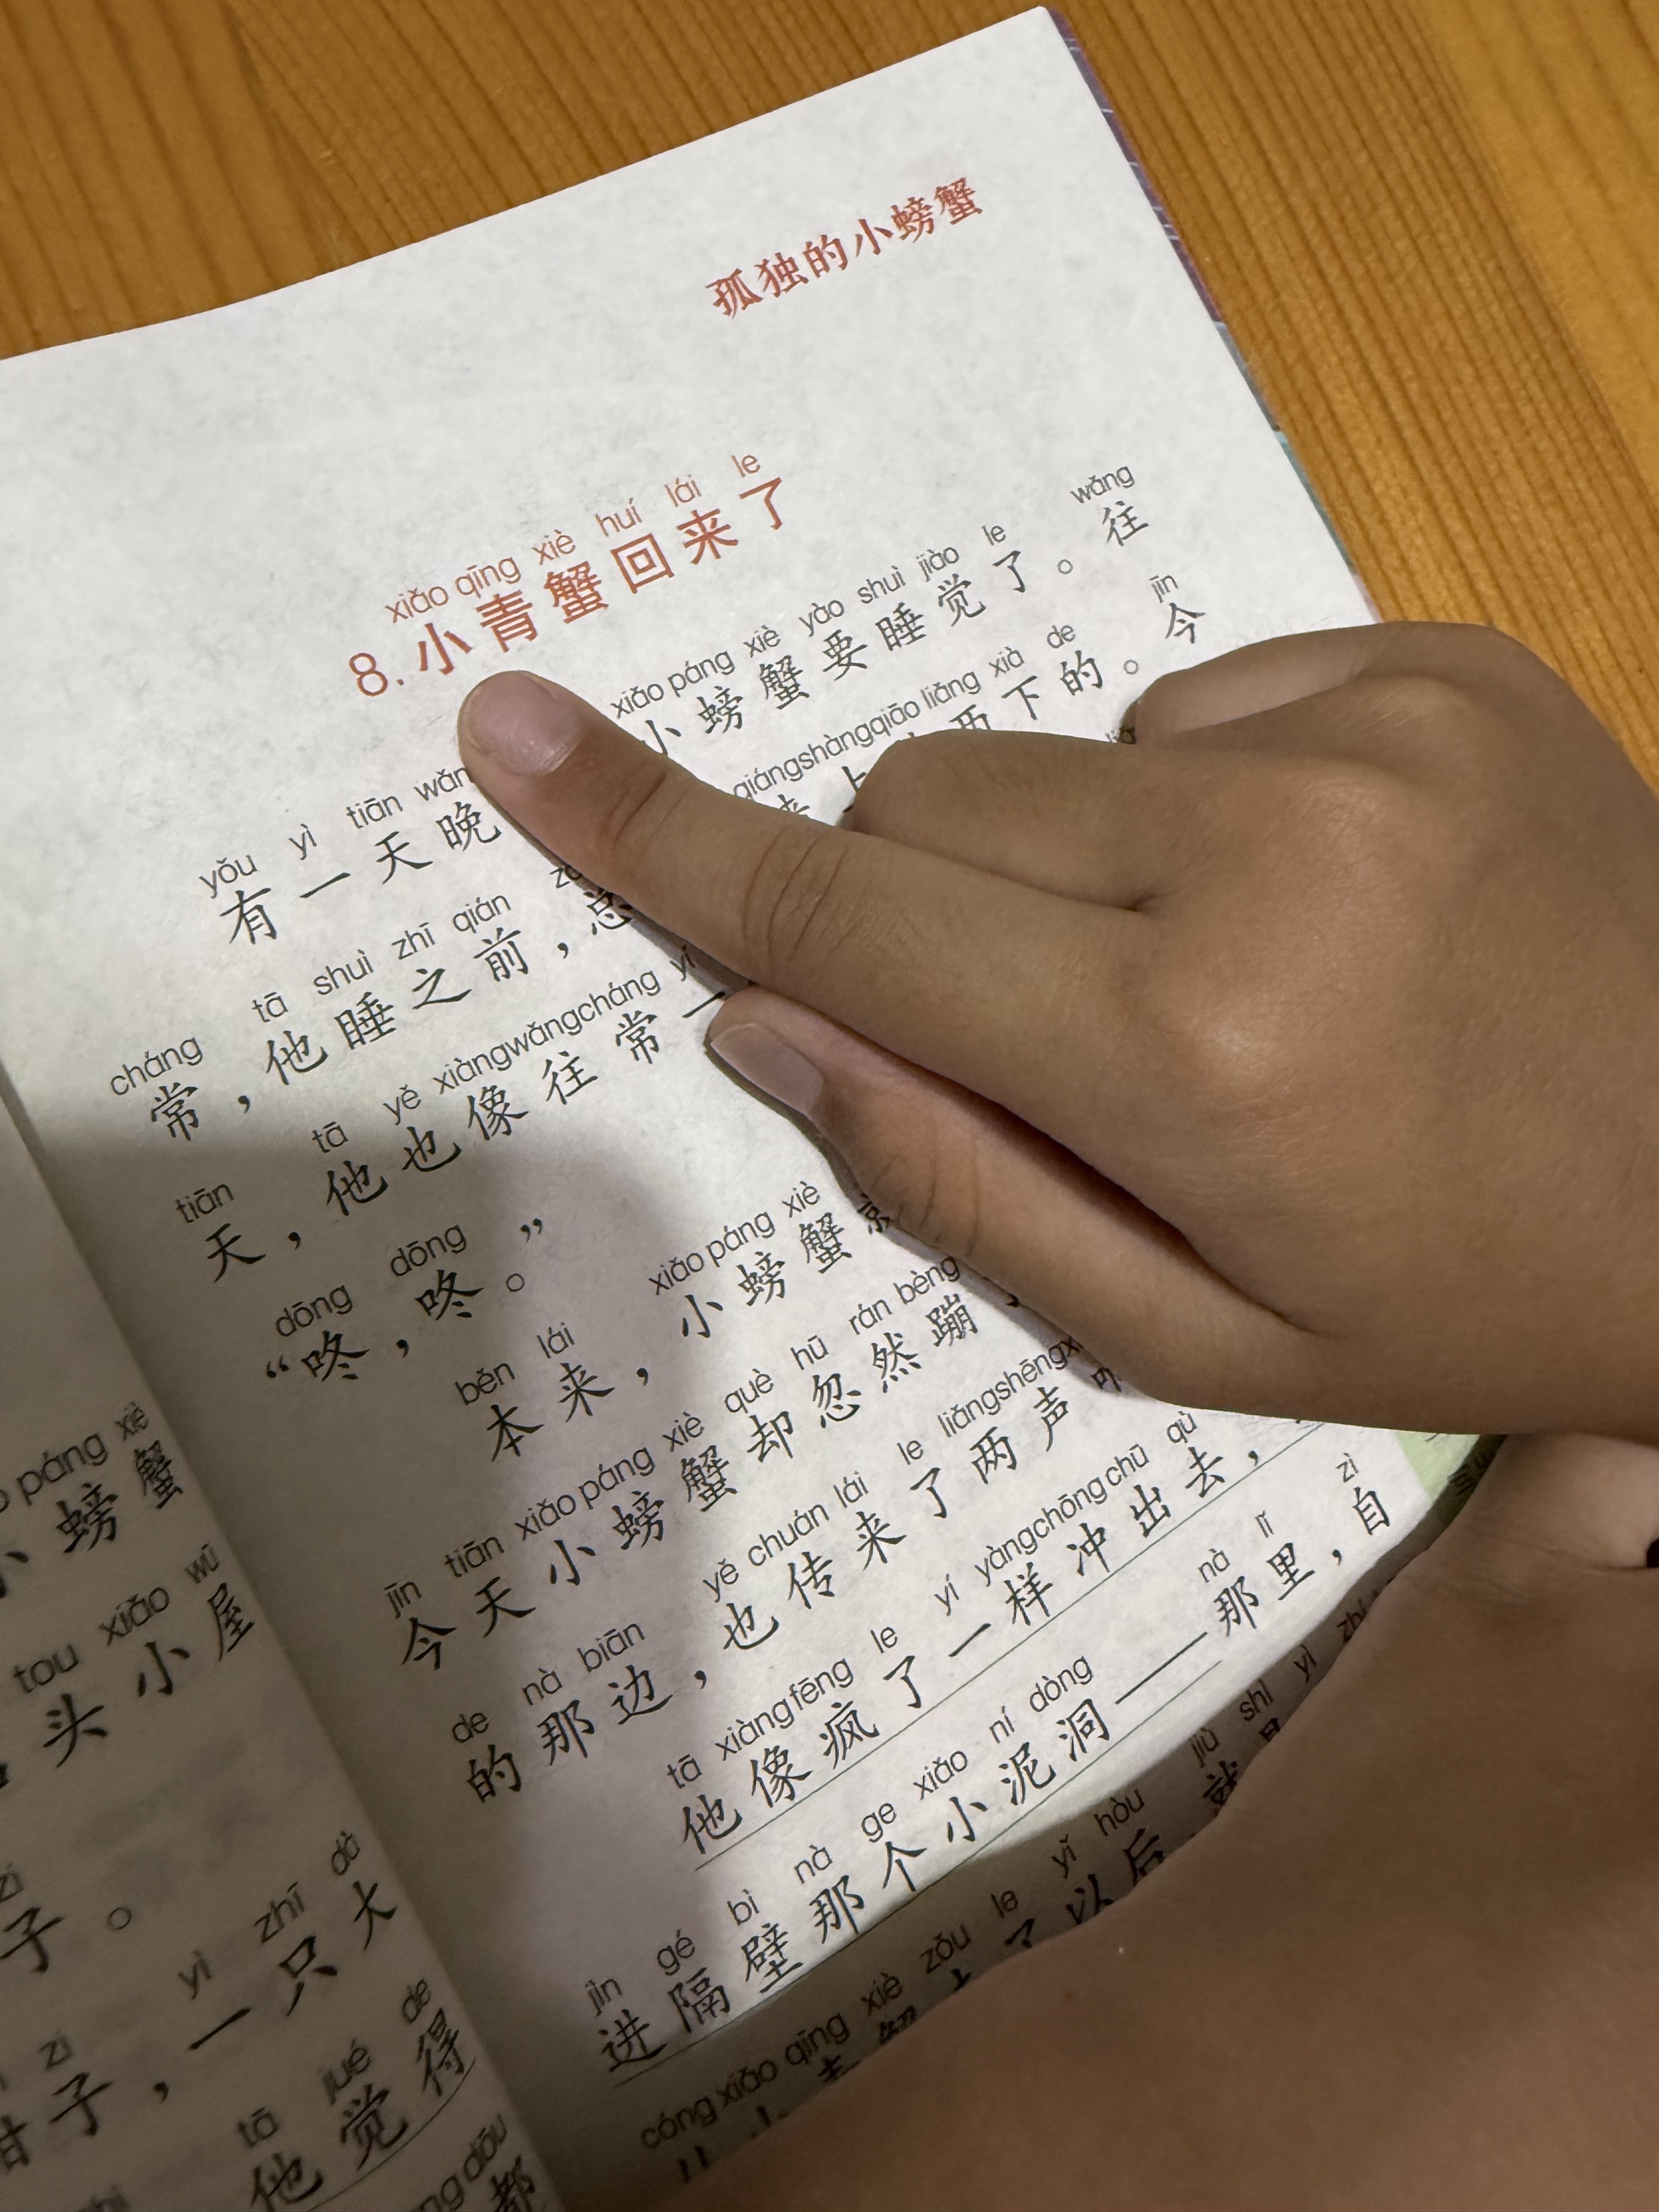 孤独的小螃蟹
xiǎo qīng xiè huí lái le
8.小青蟹回来了
yǒu yì tiān xiǎo páng xiè yào shuì jiào le wǎng
有一天晚 小螃蟹要睡觉了。往
cháng tā shuì zhī qián qiáng shàng qiāo liǎng xià de jīn
常，他睡之前，总 上 两下的。今
tiān tā yě xiàng wǎng cháng yí
天，他也像往常一
dōng dōng
“咚，咚。”
běn lái xiǎo páng xiè
本来，小螃蟹
jīn tiān xiǎo páng xiè què hū rán bèng
今天小螃蟹却忽然蹦
de nà biān yě chuán lái le liǎng shēng
的那边，也传来了两声
tā xiàng fēng le yí yàng chōng chū qù
他像疯了一样冲出去，
jìn gé bì nà ge xiǎo ní dòng nà lǐ zì
进隔壁那个小泥洞——那里，自
cóng xiǎo qīng xiè zǒu le yǐ hòu jiù shì yì zhí
了以后 就
páng xiè
螃蟹
tou xiǎo wū
头小屋
子。
yì zhī dà
子，一只大
tā jué de
他觉得
都